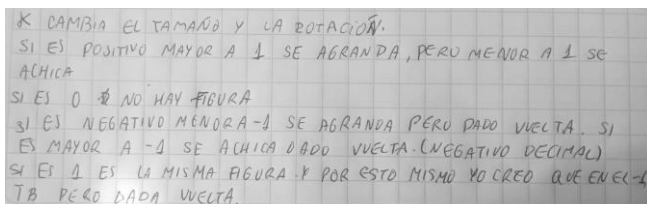 K CAMBIA EL TAMAÑO Y LA ROTACIÓN.
SI ES POSITIVO MAYOR A 1 SE AGRANDA, PERO MENOR A 1 SE
ACHICA
SI ES 0 NO HAY FIGURA
SI ES NEGATIVO MENOR A -1 SE AGRANDA PERO DADO VUELTA. SI
ES MAYOR A -1 SE ACHICA DADO VUELTA. (NEGATIVO DECIMAL)
SI ES 1 ES LA MISMA FIGURA Y POR ESTO MISMO YO CREO QUE EN EL -1
TB PERO DADA VUELTA.